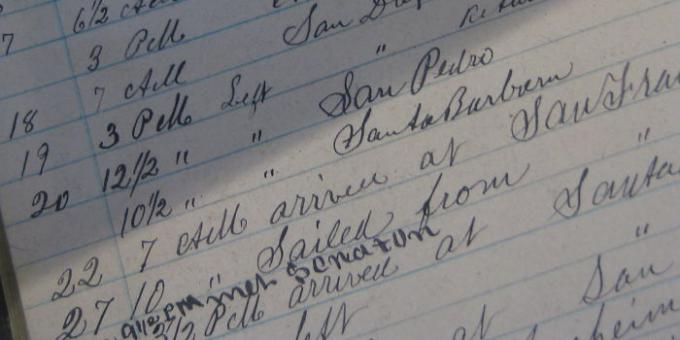 6 1/2 AM
7 3 PM San Die
7 AM " Re
18 3 PM Left San Pedro
19 12 1/2 " " Santa Barbara
20 10 1/2 " "
7 AM arrived at San Fran
22 10 " Sailed from "
9 1/2 PM met Senator
27 1/2 PM arrived at Santa
left at San "
heim